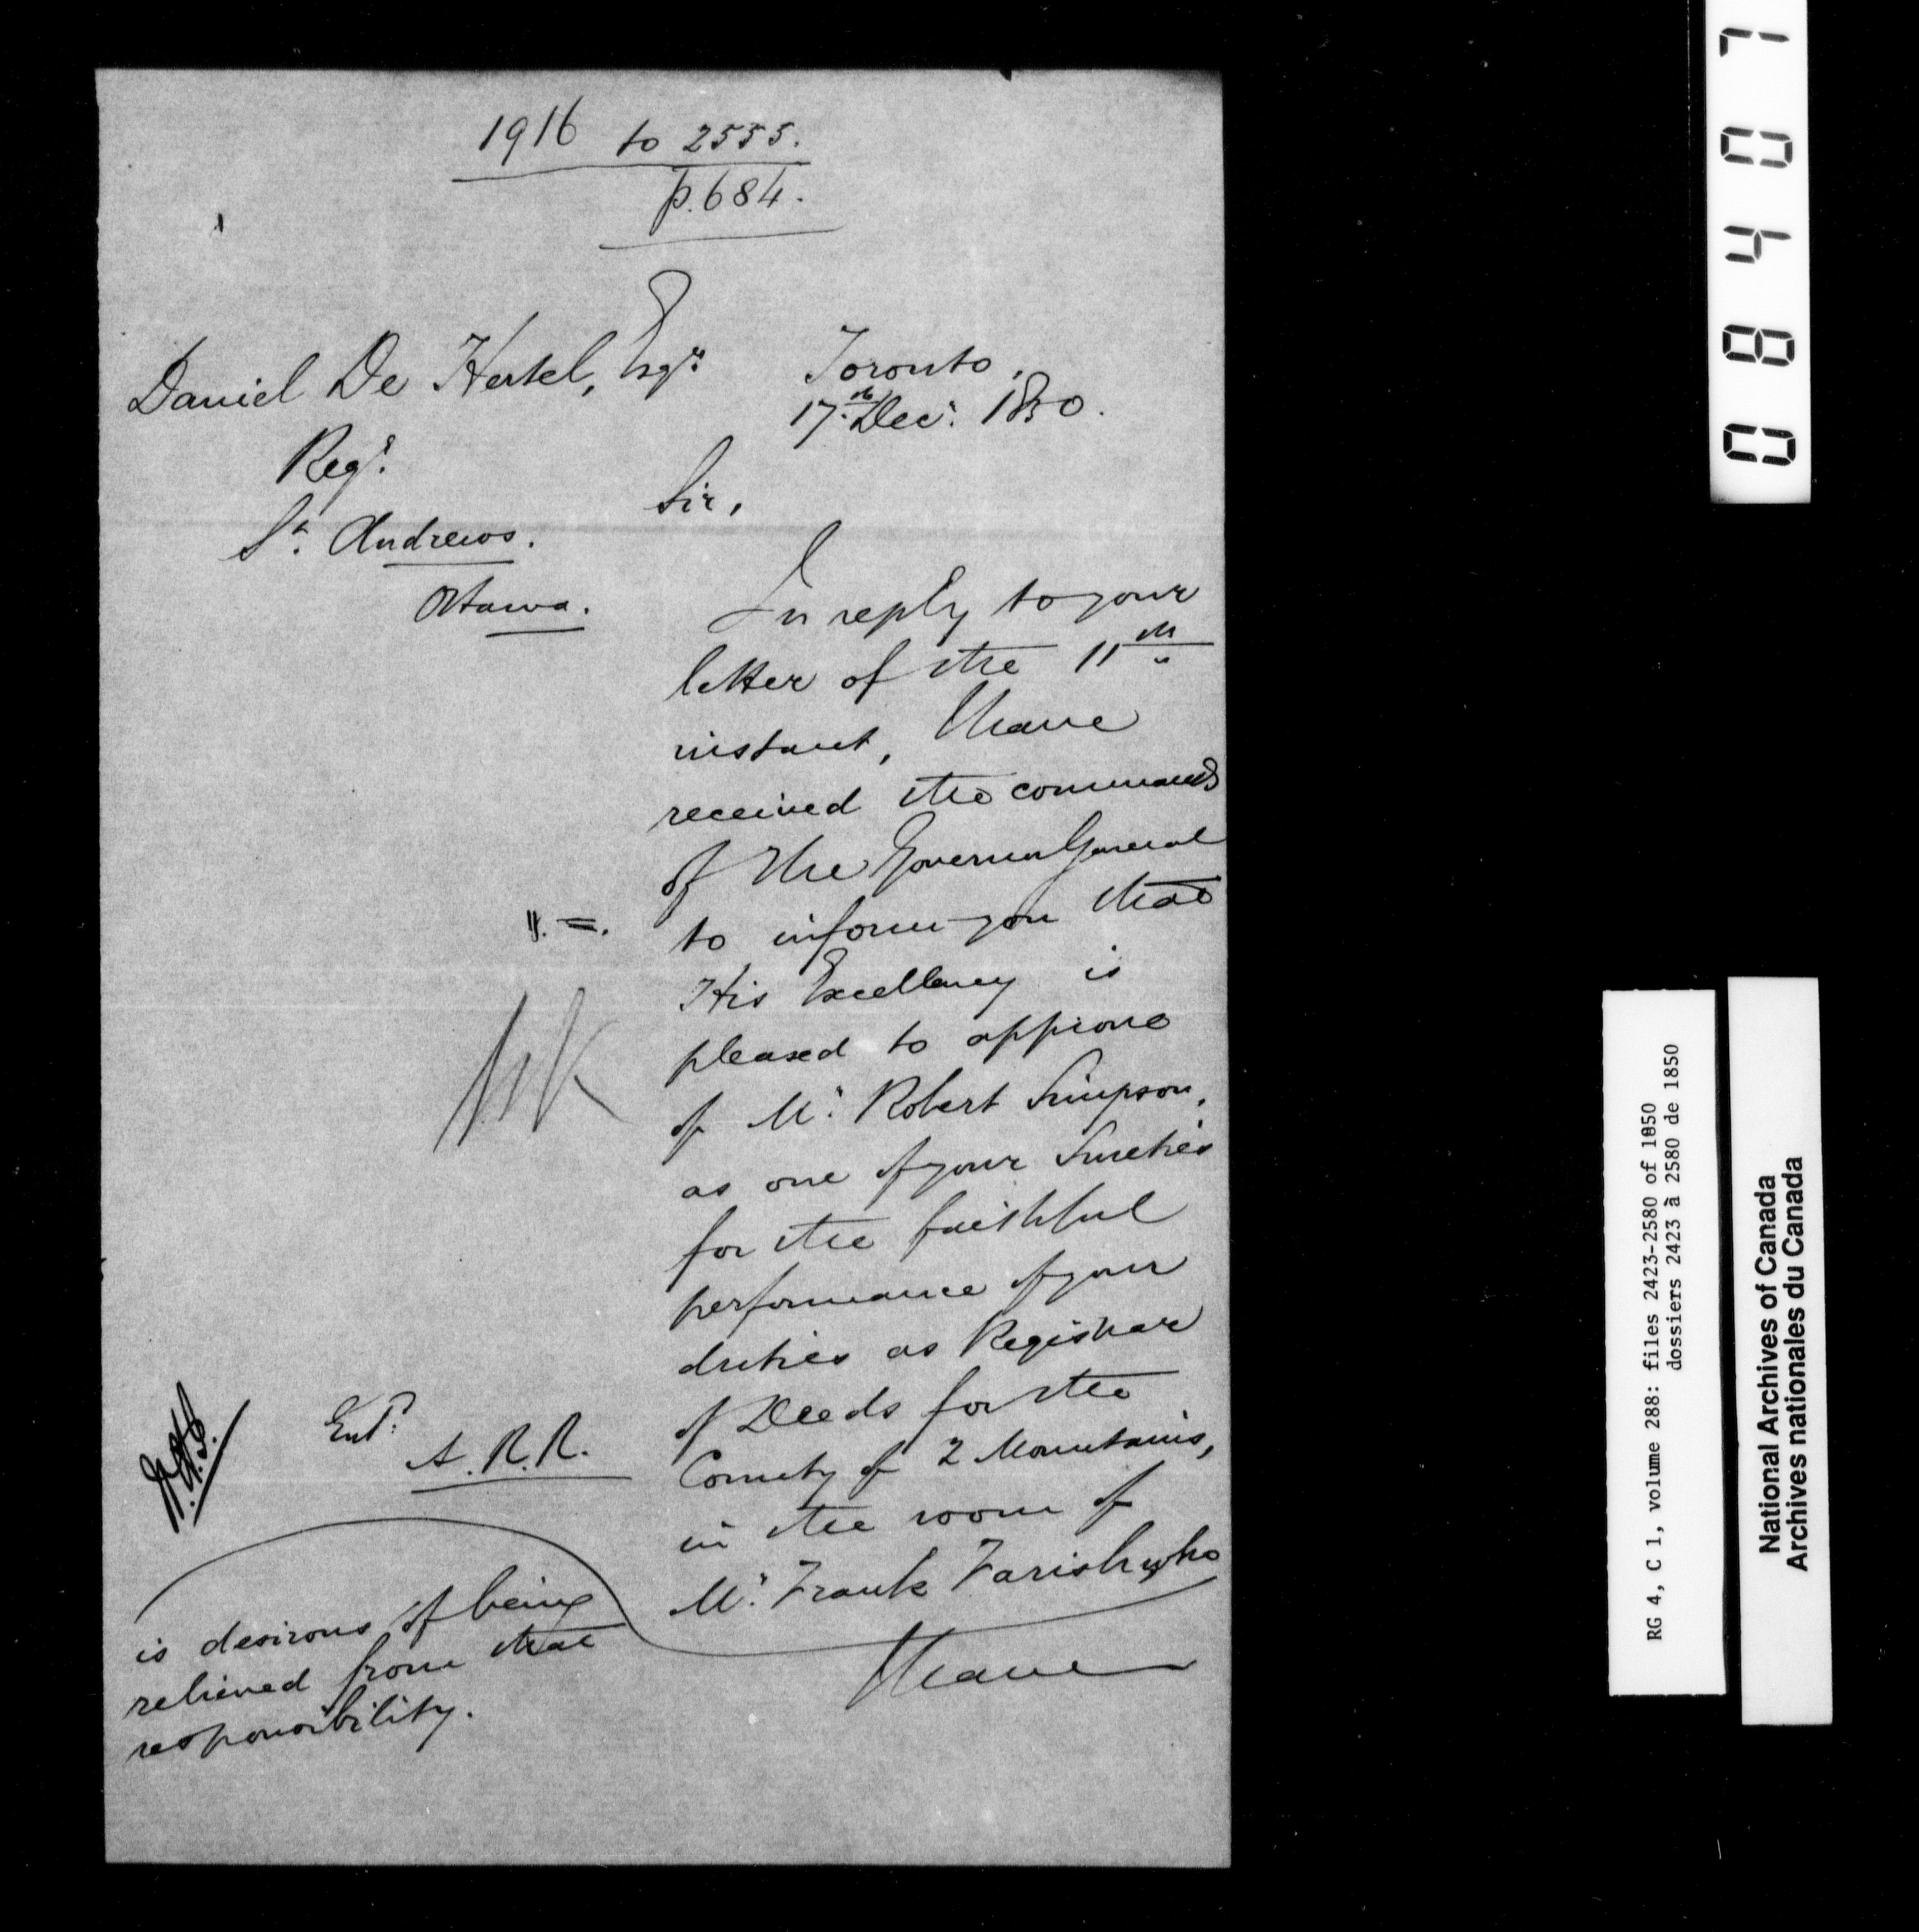 1916 to 2555.
p. 684.
Daniel De Hertel, Esqre
Regr
St. Andrews.
Ottawa.
Toronto,
17th Decr. 1850.
Sir,
In reply to your
letter of the 11th
instant, I have
received the commands
of the Governor General
to inform you that
His Excellency is
pleased to approve
of Mr. Robert Simpson,
as one of your Sureties
for the faithful
performance of your
duties as Registrar
of Deeds for the
County of 2 Mountains,
in the room of
Mr. Frank Farish, who
is desirous of being
relieved from that
responsibility.
I have
Entd.
A.R.R.
08407
RG 4, C 1, volume 288: files 2423-2580 of 1850
dossiers 2423 à 2580 de 1850
National Archives of Canada
Archives nationales du Canada